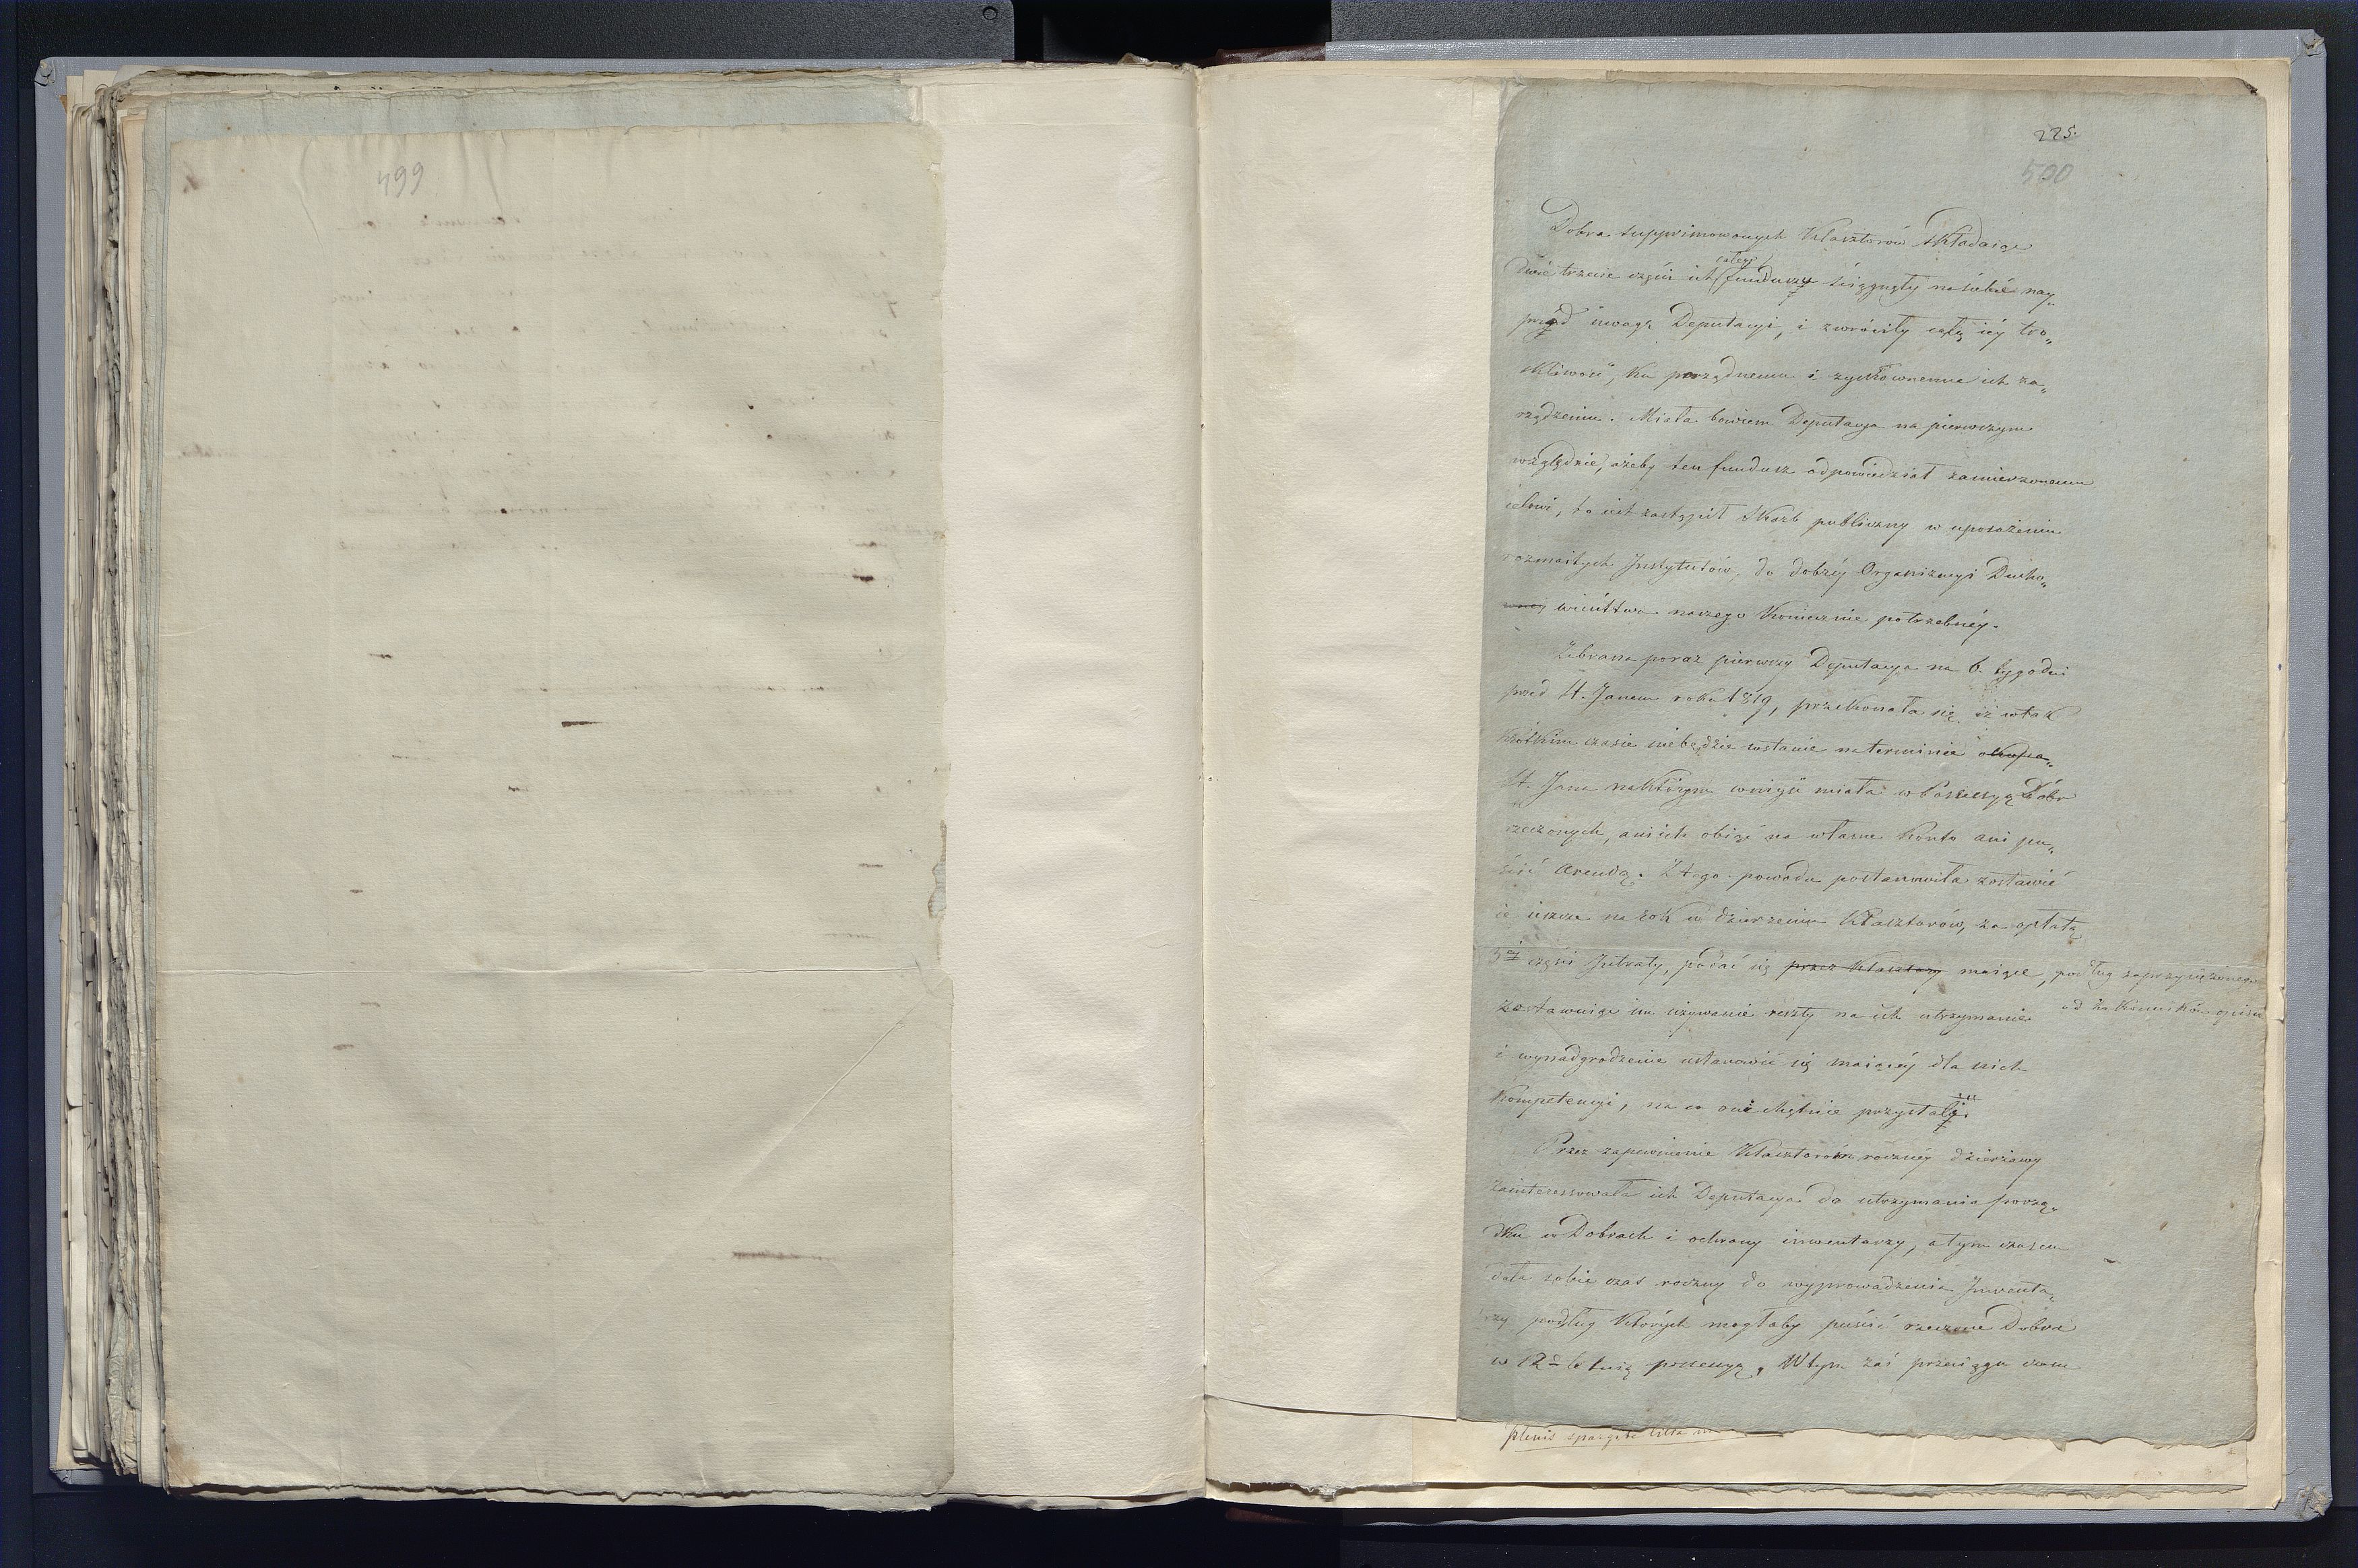 499
225.
500
Dobra supprimowanych Klasztorów składaiąc
dwie trzecie części ich całego funduszu ściągnęły na siebie nay„
przód uwagę Deputacyi, i zwróciły całą iéy tro„
skliwość, ku porządnemu i zyskownemu ich za„
rządzeniu. Miała bowiem Deputacya na pierwszym
względzie, ażeby ten fundusz odpowiedział zamierzonemu
celowi, to iest zastąpił Skarb publiczny w uposażeniu
rozmaitych Instytutów, do dobréy Organizacyi Ducho„
wnéj wieństwa naszego koniecznie potrzebnéy.
Zebrana poraz pierwszy Deputacya na 6. tygodni
przed St. Janem roku 1819, przekonała się iż wtak
krótkim czasie niebędzie wstanie na terminie okupa„
St. Jana naktórym wniyść miała w Possessyą Dóbr
rzeczonych, ani ich obiąć na własne konto ani pu„
ścić Arendą. Z tego powodu postanowiła zostawić
ie ieszcze na rok w dzierzeniu Klasztorów, za opłatą
3éj części Intraty, podać się przez Klasztory maiącéj, podług zaprzysiężonego
od Zakonników opisu
zostawuiąc im używanie reszty na ich utrzymanie
i wynadgrodzenie ustanowić się maiącéy dla nich
Kompetencyi, na co oni chętnie przystali.
Przez zapewnienie Klasztorom rocznéy dzierżawy
zainteressowała ich Deputacya do utrzymania porzą„
dku w Dobrach i ochrony inwentarzy, a tym czasem
dała sobie czas roczny do wyprowadzenia Inwenta„
rzy podług których mogłaby puścić rzeczone Dobra
w 12-letnią possessyą. W tym zaś przeciągu czasu
plenis spargite lilia